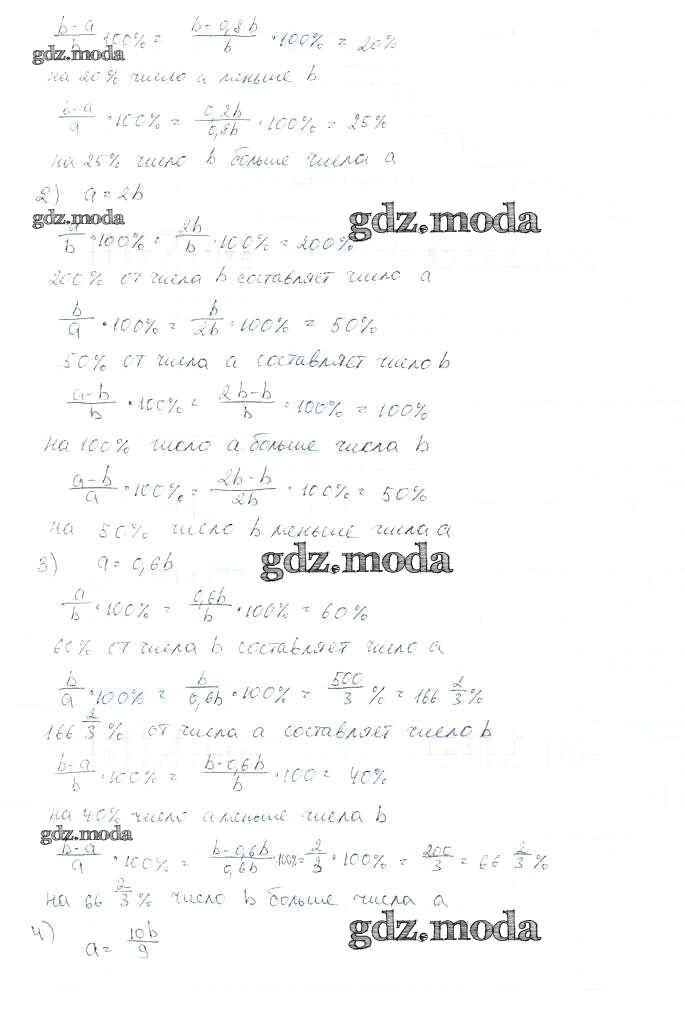 (b-a)/b · 100% = (b-0,8b)/b · 100% = 20%
gdz.moda
на 20% число a меньше b
(b-a)/a · 100% = 0,2b/0,8b · 100% = 25%
на 25% число b больше числа a
2) a = 2b
gdz.moda gdz.moda
a/b · 100% = 2b/b · 100% = 200%
200% от числа b составляет число a
b/a · 100% = b/2b · 100% = 50%
50% от числа a составляет число b
(a-b)/b · 100% = (2b-b)/b · 100% = 100%
на 100% число a больше числа b
(a-b)/a · 100% = (2b-b)/2b · 100% = 50%
на 50% число b меньше числа a
3) a = 0,6b gdz.moda
a/b · 100% = 0,6b/b · 100% = 60%
60% от числа b составляет число a
b/a · 100% = b/0,6b · 100% = 500/3 % = 166 2/3 %
166 2/3 % от числа a составляет число b
(b-a)/b · 100% = (b-0,6b)/b · 100 = 40%
на 40% число a меньше числа b
gdz.moda
(b-a)/a · 100% = (b-0,6b)/0,6b · 100% = 2/3 · 100% = 200/3 = 66 2/3 %
на 66 2/3 % число b больше числа a
4) a = 10b/9 gdz.moda